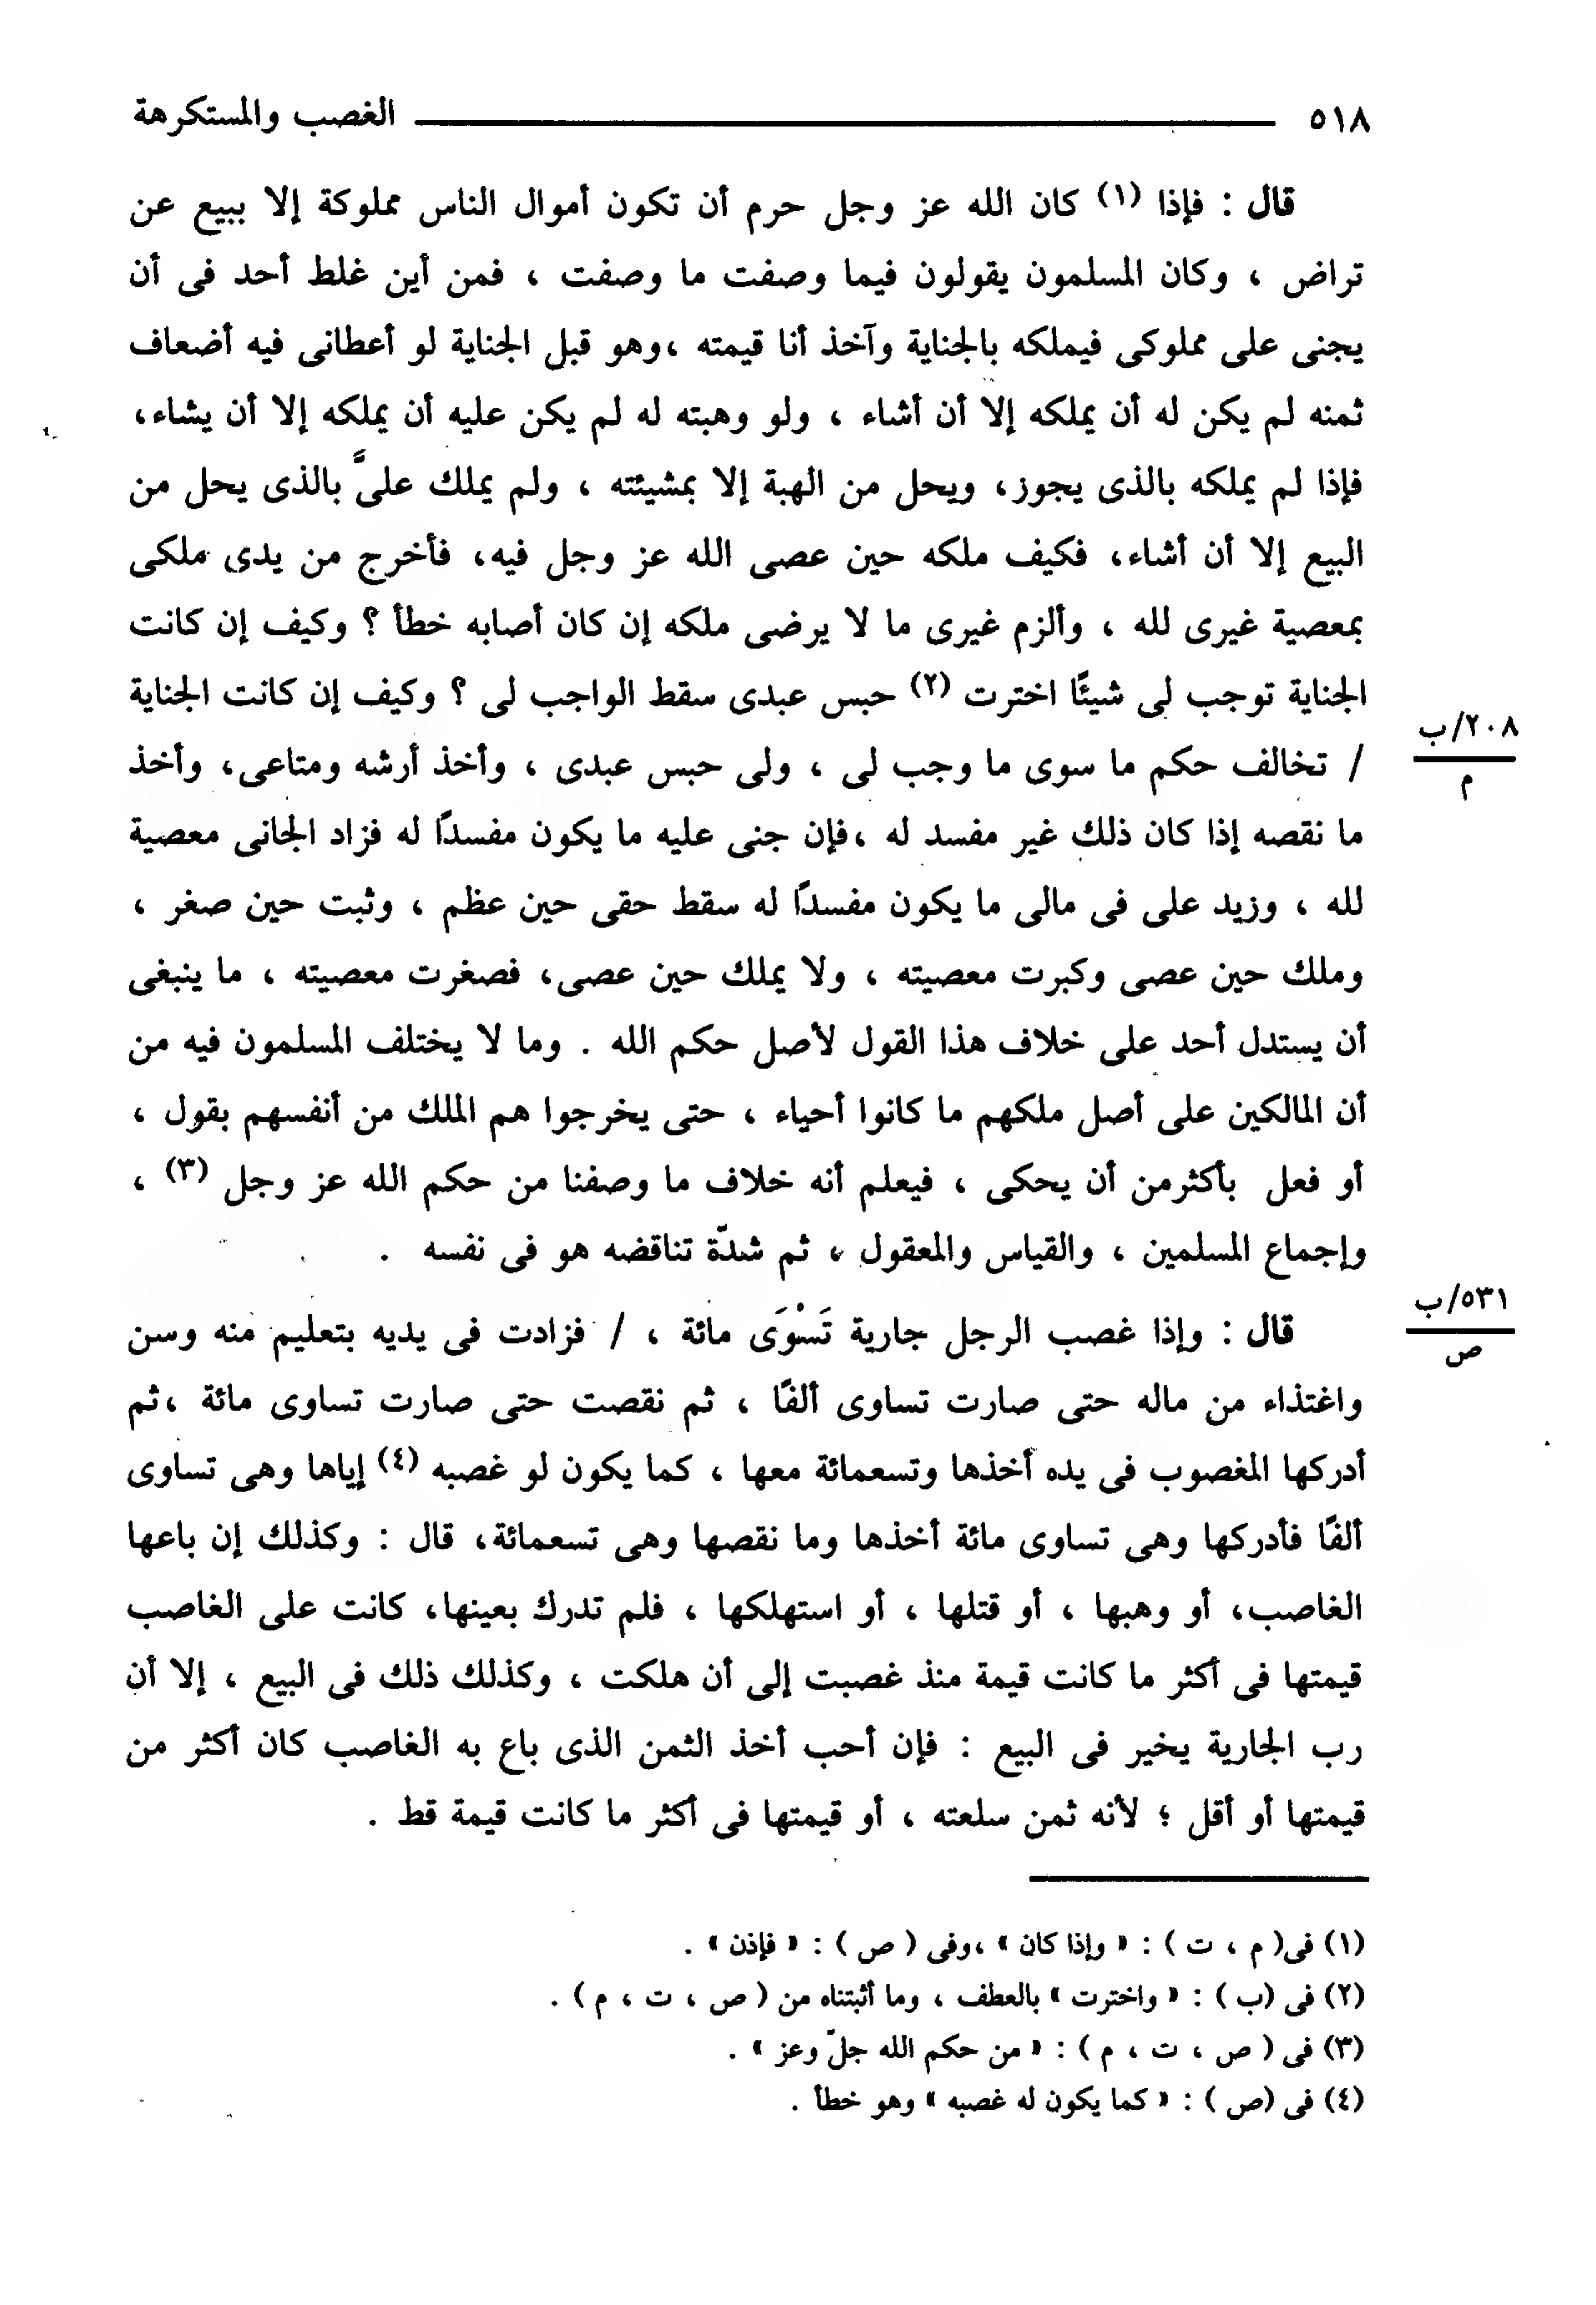 ٥١٨ الغصب والمستكرهة
قال : فإذا (١) كان الله عز وجل حرم أن تكون أموال الناس مملوكة إلا ببيع عن
تراض ، وكان المسلمون يقولون فيما وصفت ما وصفت ، فمن أين غلط أحد فى أن
يجنى على مملوكى فيملكه بالجناية وآخذ أنا قيمته ،وهو قبل الجناية لو أعطانى فيه أضعاف
ثمنه لم يكن له أن يملكه إلا أن أشاء ، ولو وهبته له لم يكن عليه أن يملكه إلا أن يشاء،
فإذا لم يملكه بالذى يجوز، ويحل من الهبة إلا بمشيئته ، ولم يملك علىَّ بالذى يحل من
البيع إلا أن أشاء، فكيف ملكه حين عصى الله عز وجل فيه، فأخرج من يدى ملكى
بمعصية غيرى لله ، وألزم غيرى ما لا يرضى ملكه إن كان أصابه خطأ ؟ وكيف إن كانت
الجناية توجب لى شيئًا اخترت (٢) حبس عبدى سقط الواجب لى ؟ وكيف إن كانت الجناية
٢٠٨/ب
م
/ تخالف حكم ما سوى ما وجب لى ، ولى حبس عبدى ، وأخذ أرشه ومتاعى، وأخذ
ما نقصه إذا كان ذلك غير مفسد له ،فإن جنى عليه ما يكون مفسدًا له فزاد الجانى معصية
لله ، وزيد على فى مالى ما يكون مفسدًا له سقط حقى حين عظم ، وثبت حين صغر ،
وملك حين عصى وكبرت معصيته ، ولا يملك حين عصى، فصغرت معصيته ، ما ينبغى
أن يستدل أحد على خلاف هذا القول لأصل حكم الله . وما لا يختلف المسلمون فيه من
أن المالكين على أصل ملكهم ما كانوا أحياء ، حتى يخرجوا هم الملك من أنفسهم بقول ،
أو فعل بأكثرمن أن يحكى ، فيعلم أنه خلاف ما وصفنا من حكم الله عز وجل (٣) ،
وإجماع المسلمين ، والقياس والمعقول ، ثم شدّة تناقضه هو فى نفسه .
٥٣١/ب
ص
قال : وإذا غصب الرجل جارية تَسْوَى مائة ، / فزادت فى يديه بتعليم منه وسن
واغتذاء من ماله حتى صارت تساوى ألفًا ، ثم نقصت حتى صارت تساوى مائة ،ثم
أدركها المغصوب فى يده أخذها وتسعمائة معها ، كما يكون لو غصبه (٤) إياها وهى تساوى
ألفًا فأدركها وهى تساوى مائة أخذها وما نقصها وهى تسعمائة، قال : وكذلك إن باعها
الغاصب، أو وهبها ، أو قتلها ، أو استهلكها ، فلم تدرك بعينها، كانت على الغاصب
قيمتها فى أكثر ما كانت قيمة منذ غصبت إلى أن هلكت ، وكذلك ذلك فى البيع ، إلا أن
رب الجارية يخير فى البيع : فإن أحب أخذ الثمن الذى باع به الغاصب كان أكثر من
قيمتها أو أقل ؛ لأنه ثمن سلعته ، أو قيمتها فى أكثر ما كانت قيمة قط .
(١) فى( م ، ت ) : « وإذا كان » ،وفى ( ص ) : « فإذن » .
(٢) فى (ب ) : « واخترت » بالعطف ، وما أثبتناه من ( ص ، ت ، م ) .
(٣) فى ( ص ، ت ، م ) : « من حكم الله جلّ وعز » .
(٤) فى (ص ) : « كما يكون له غصبه » وهو خطأ .